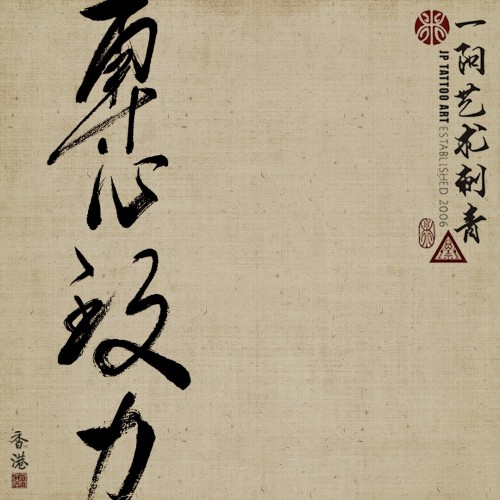 一阳艺术刺青
JP TATTOO ART ESTABLISHED 2006
專心致力
香港